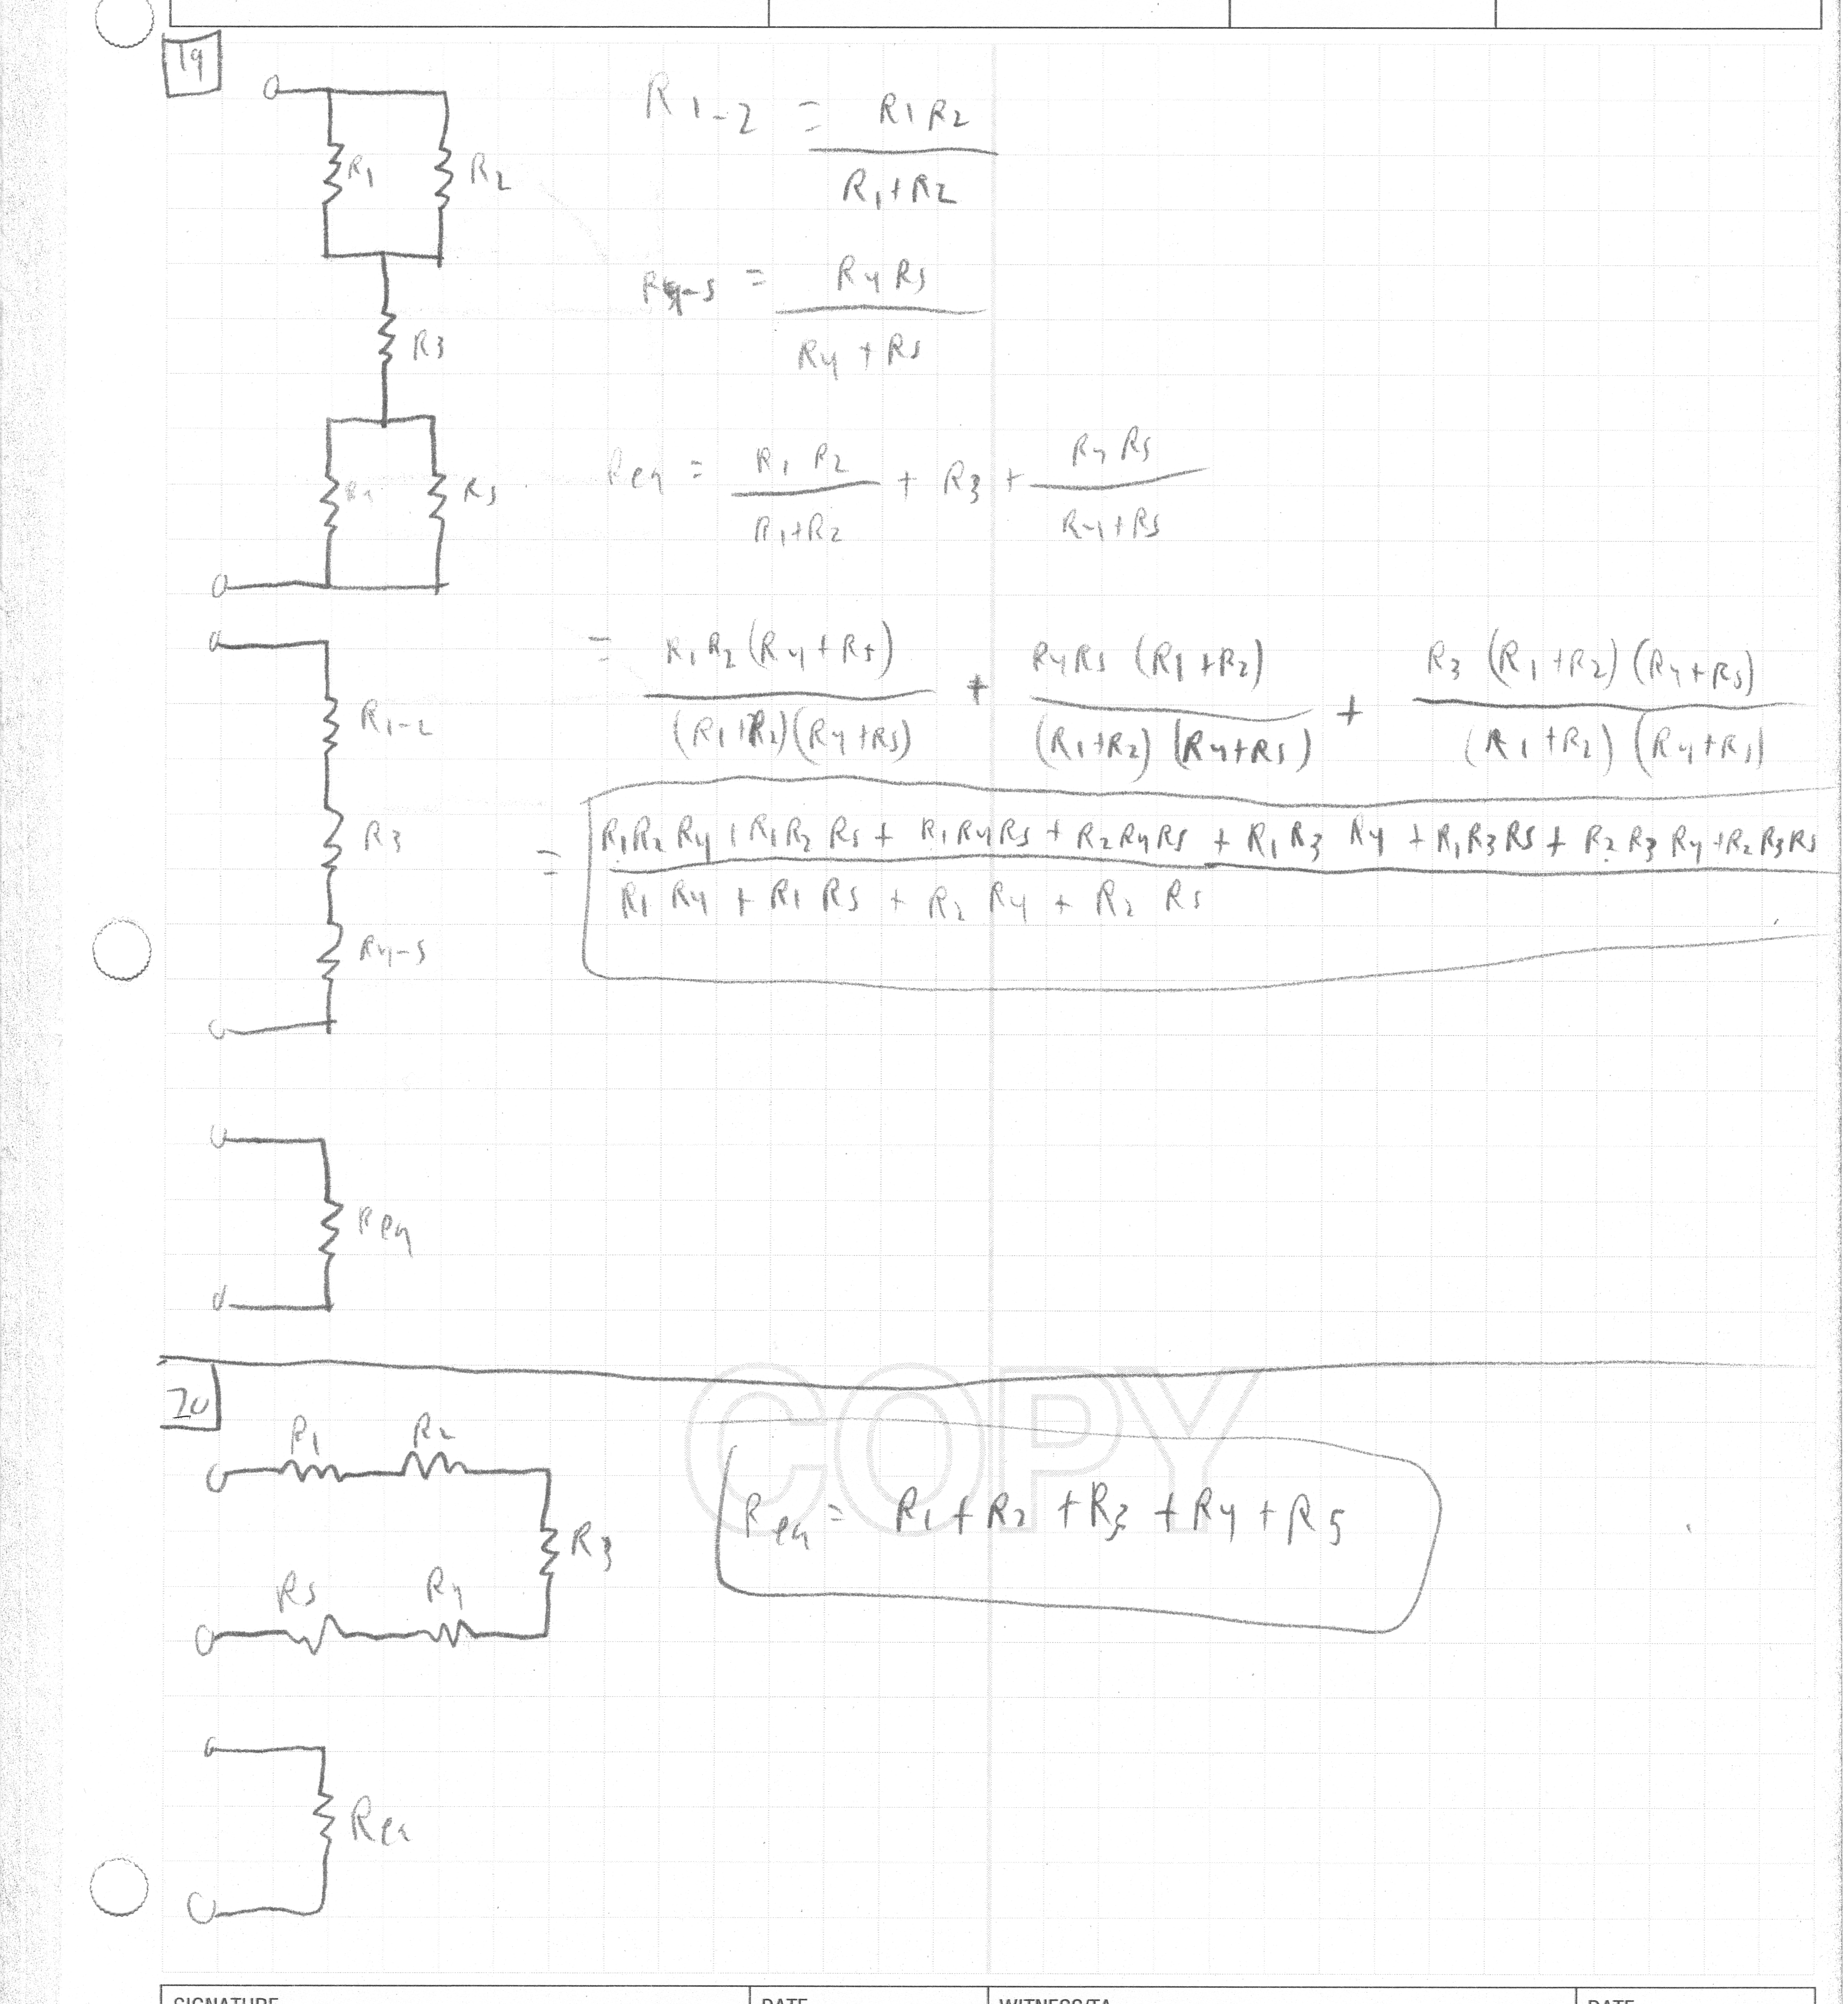 19
R1-2 = R1 R2 / R1+R2
R1
R2
R4-5 = R4 R5 / R4 + R5
R3
Req = R1 R2 / R1+R2 + R3 + R4 R5 / R4+R5
R4
R5
= R1 R2 (R4+R5) / (R1+R2)(R4+R5) + R4R5 (R1+R2) / (R1+R2) (R4+R5) + R3 (R1+R2)(R4+R5) / (R1+R2) (R4+R5)
R1-2
= R1R2R4 + R1R2R5 + R1R4R5 + R2R4R5 + R1R3R4 + R1R3R5 + R2R3R4 + R2R3R5 / R1R4 + R1R5 + R2R4 + R2R5
R3
R4-5
Req
COPY
20
R1
R2
Req = R1 + R2 + R3 + R4 + R5
R3
R5
R4
Req
SIGNATURE
DATE
WITNESS/TA
DATE